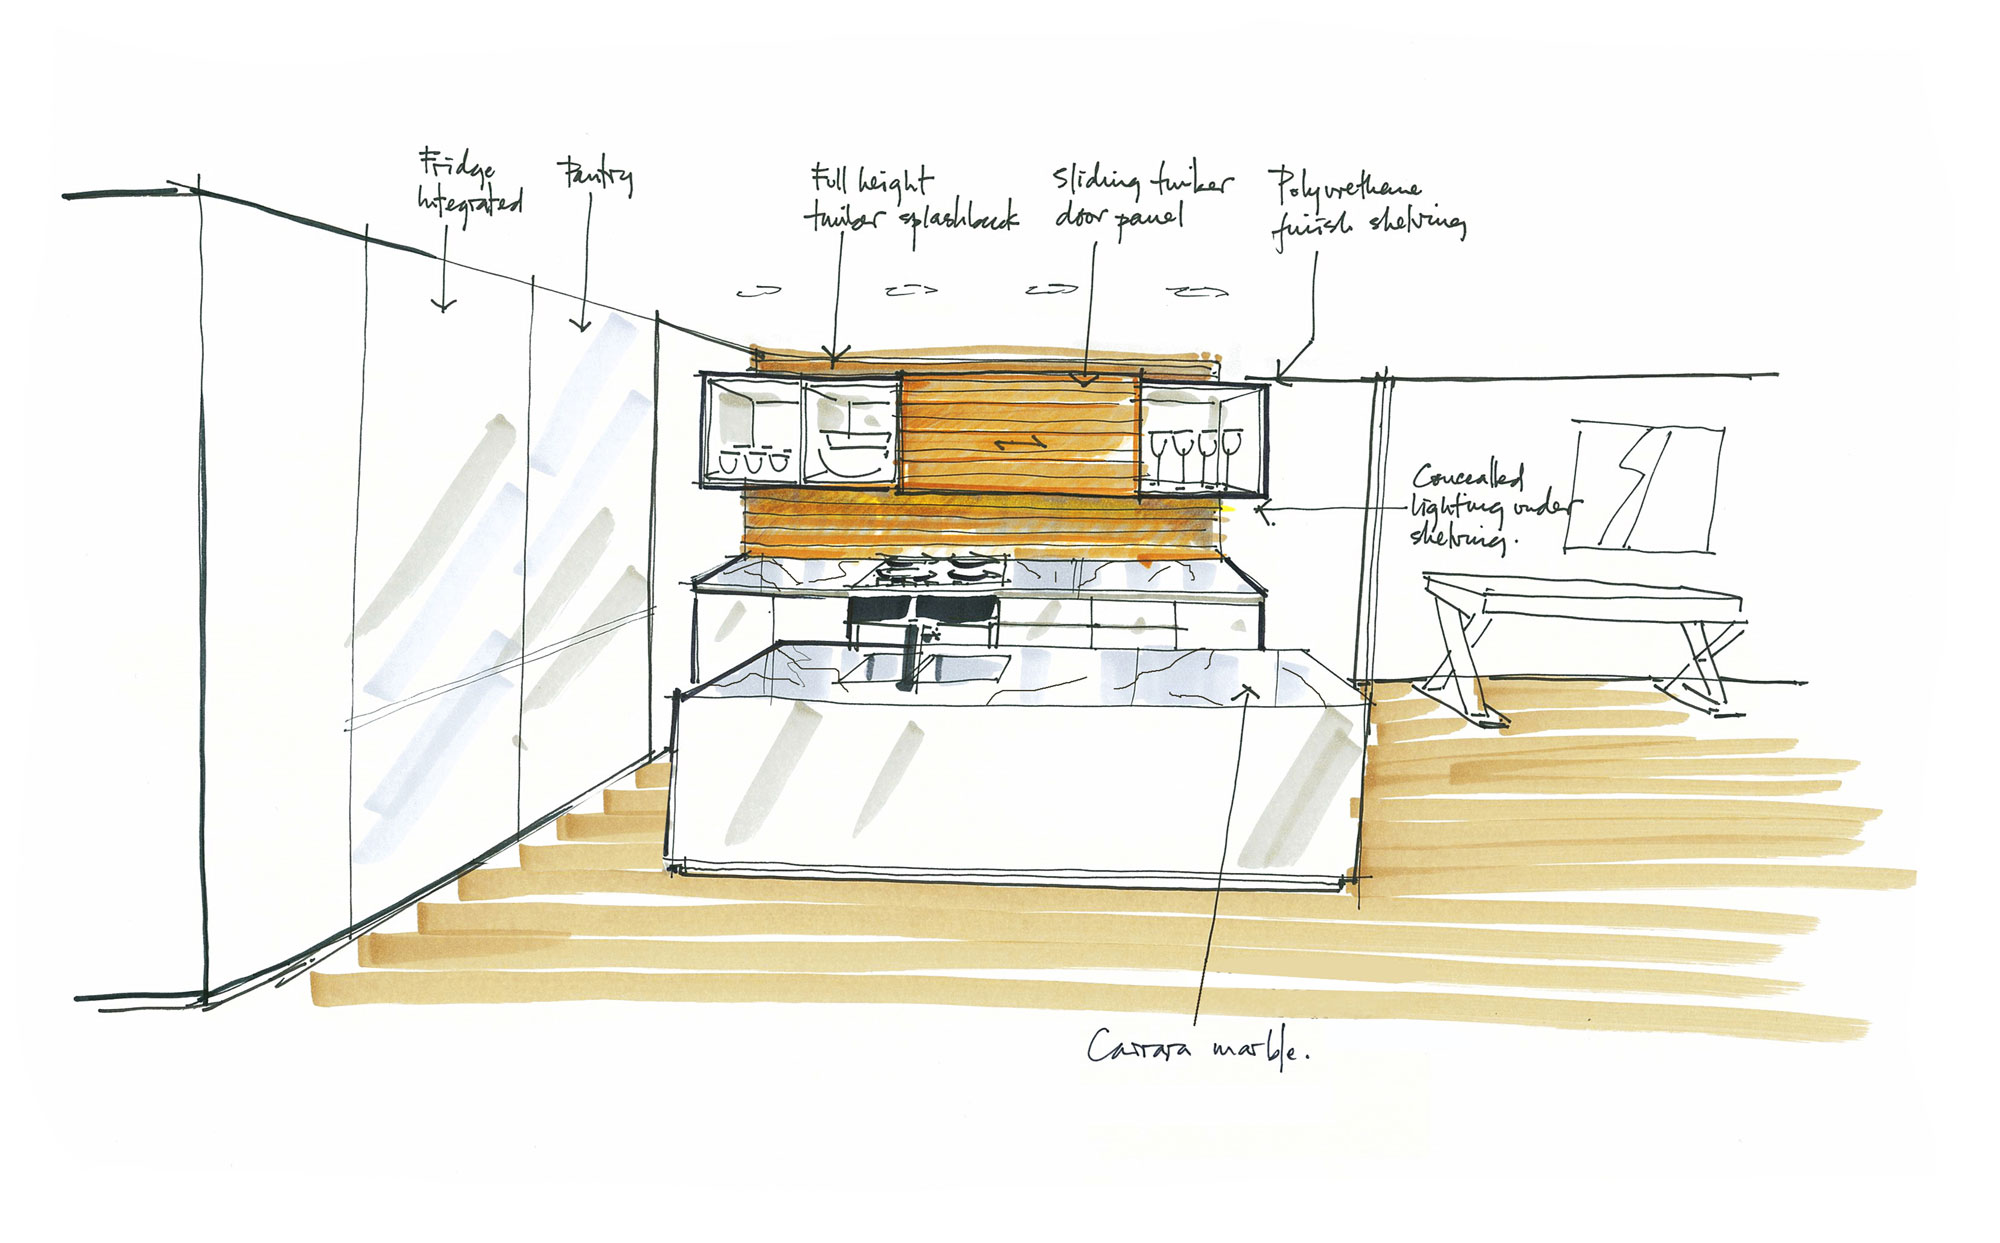 Fridge
Integrated
Pantry
Full height
timber splashback
Sliding timber
door panel
Polyurethane
finish shelving
Concealled
lighting under
shelving.
Carrara marble.